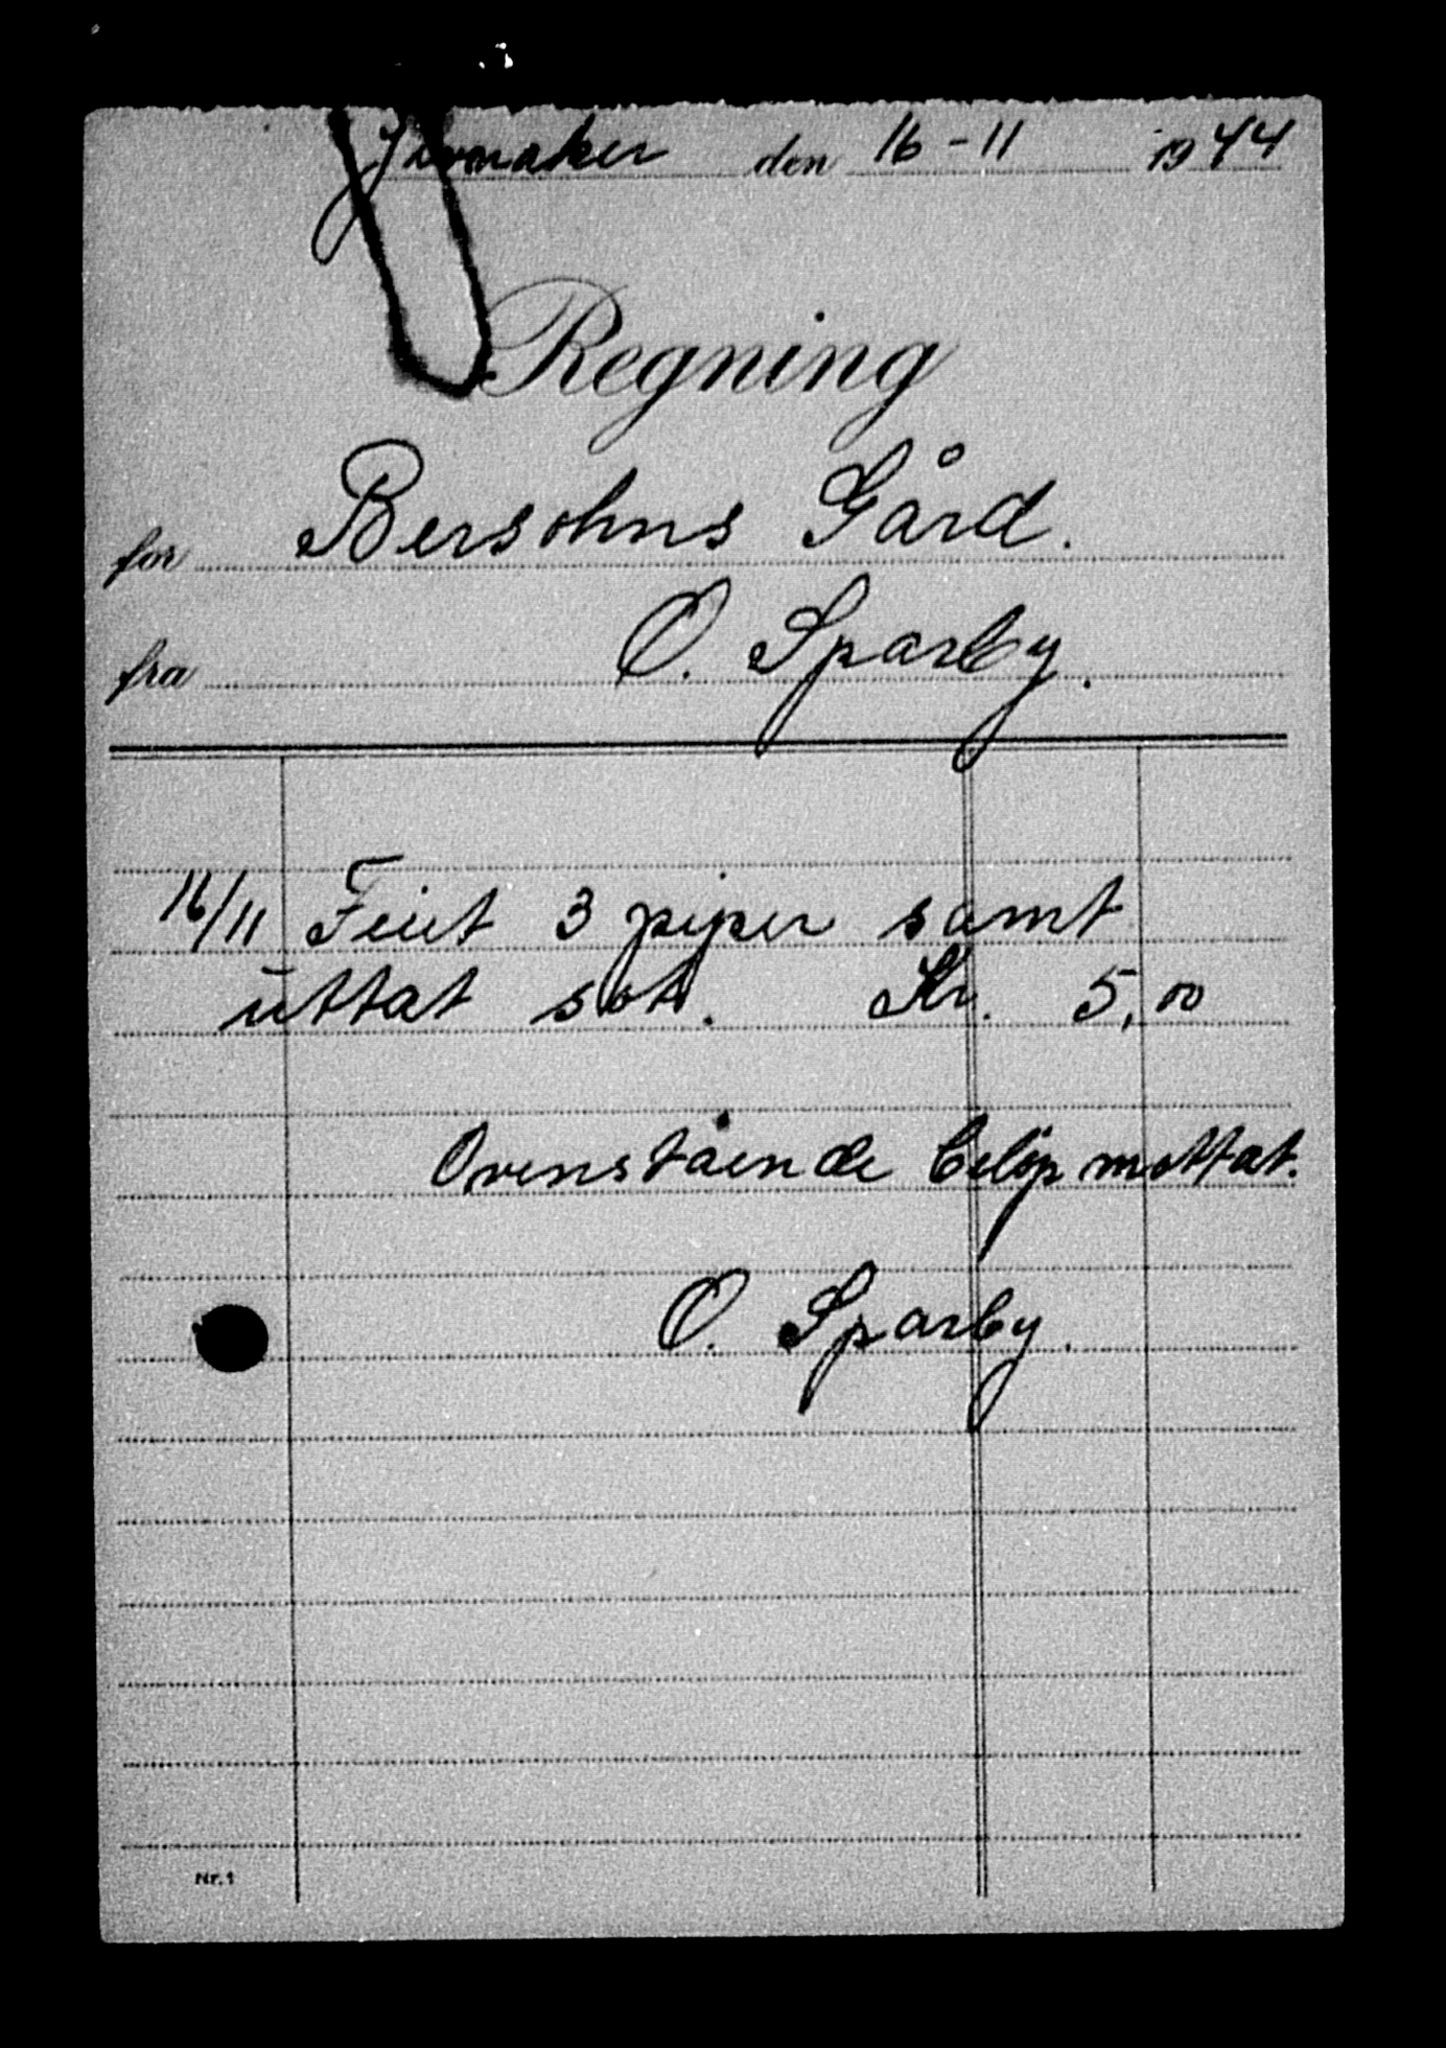 Jevnaker den 16-11 1944
Regning
for Bersohns Gård.
fra O. Sparby.
16/11 Feiet 3 piper samt
uttat sot. Kr. 5,00
Ovenstående beløp mottat.
O. Sparby.
Nr. 1